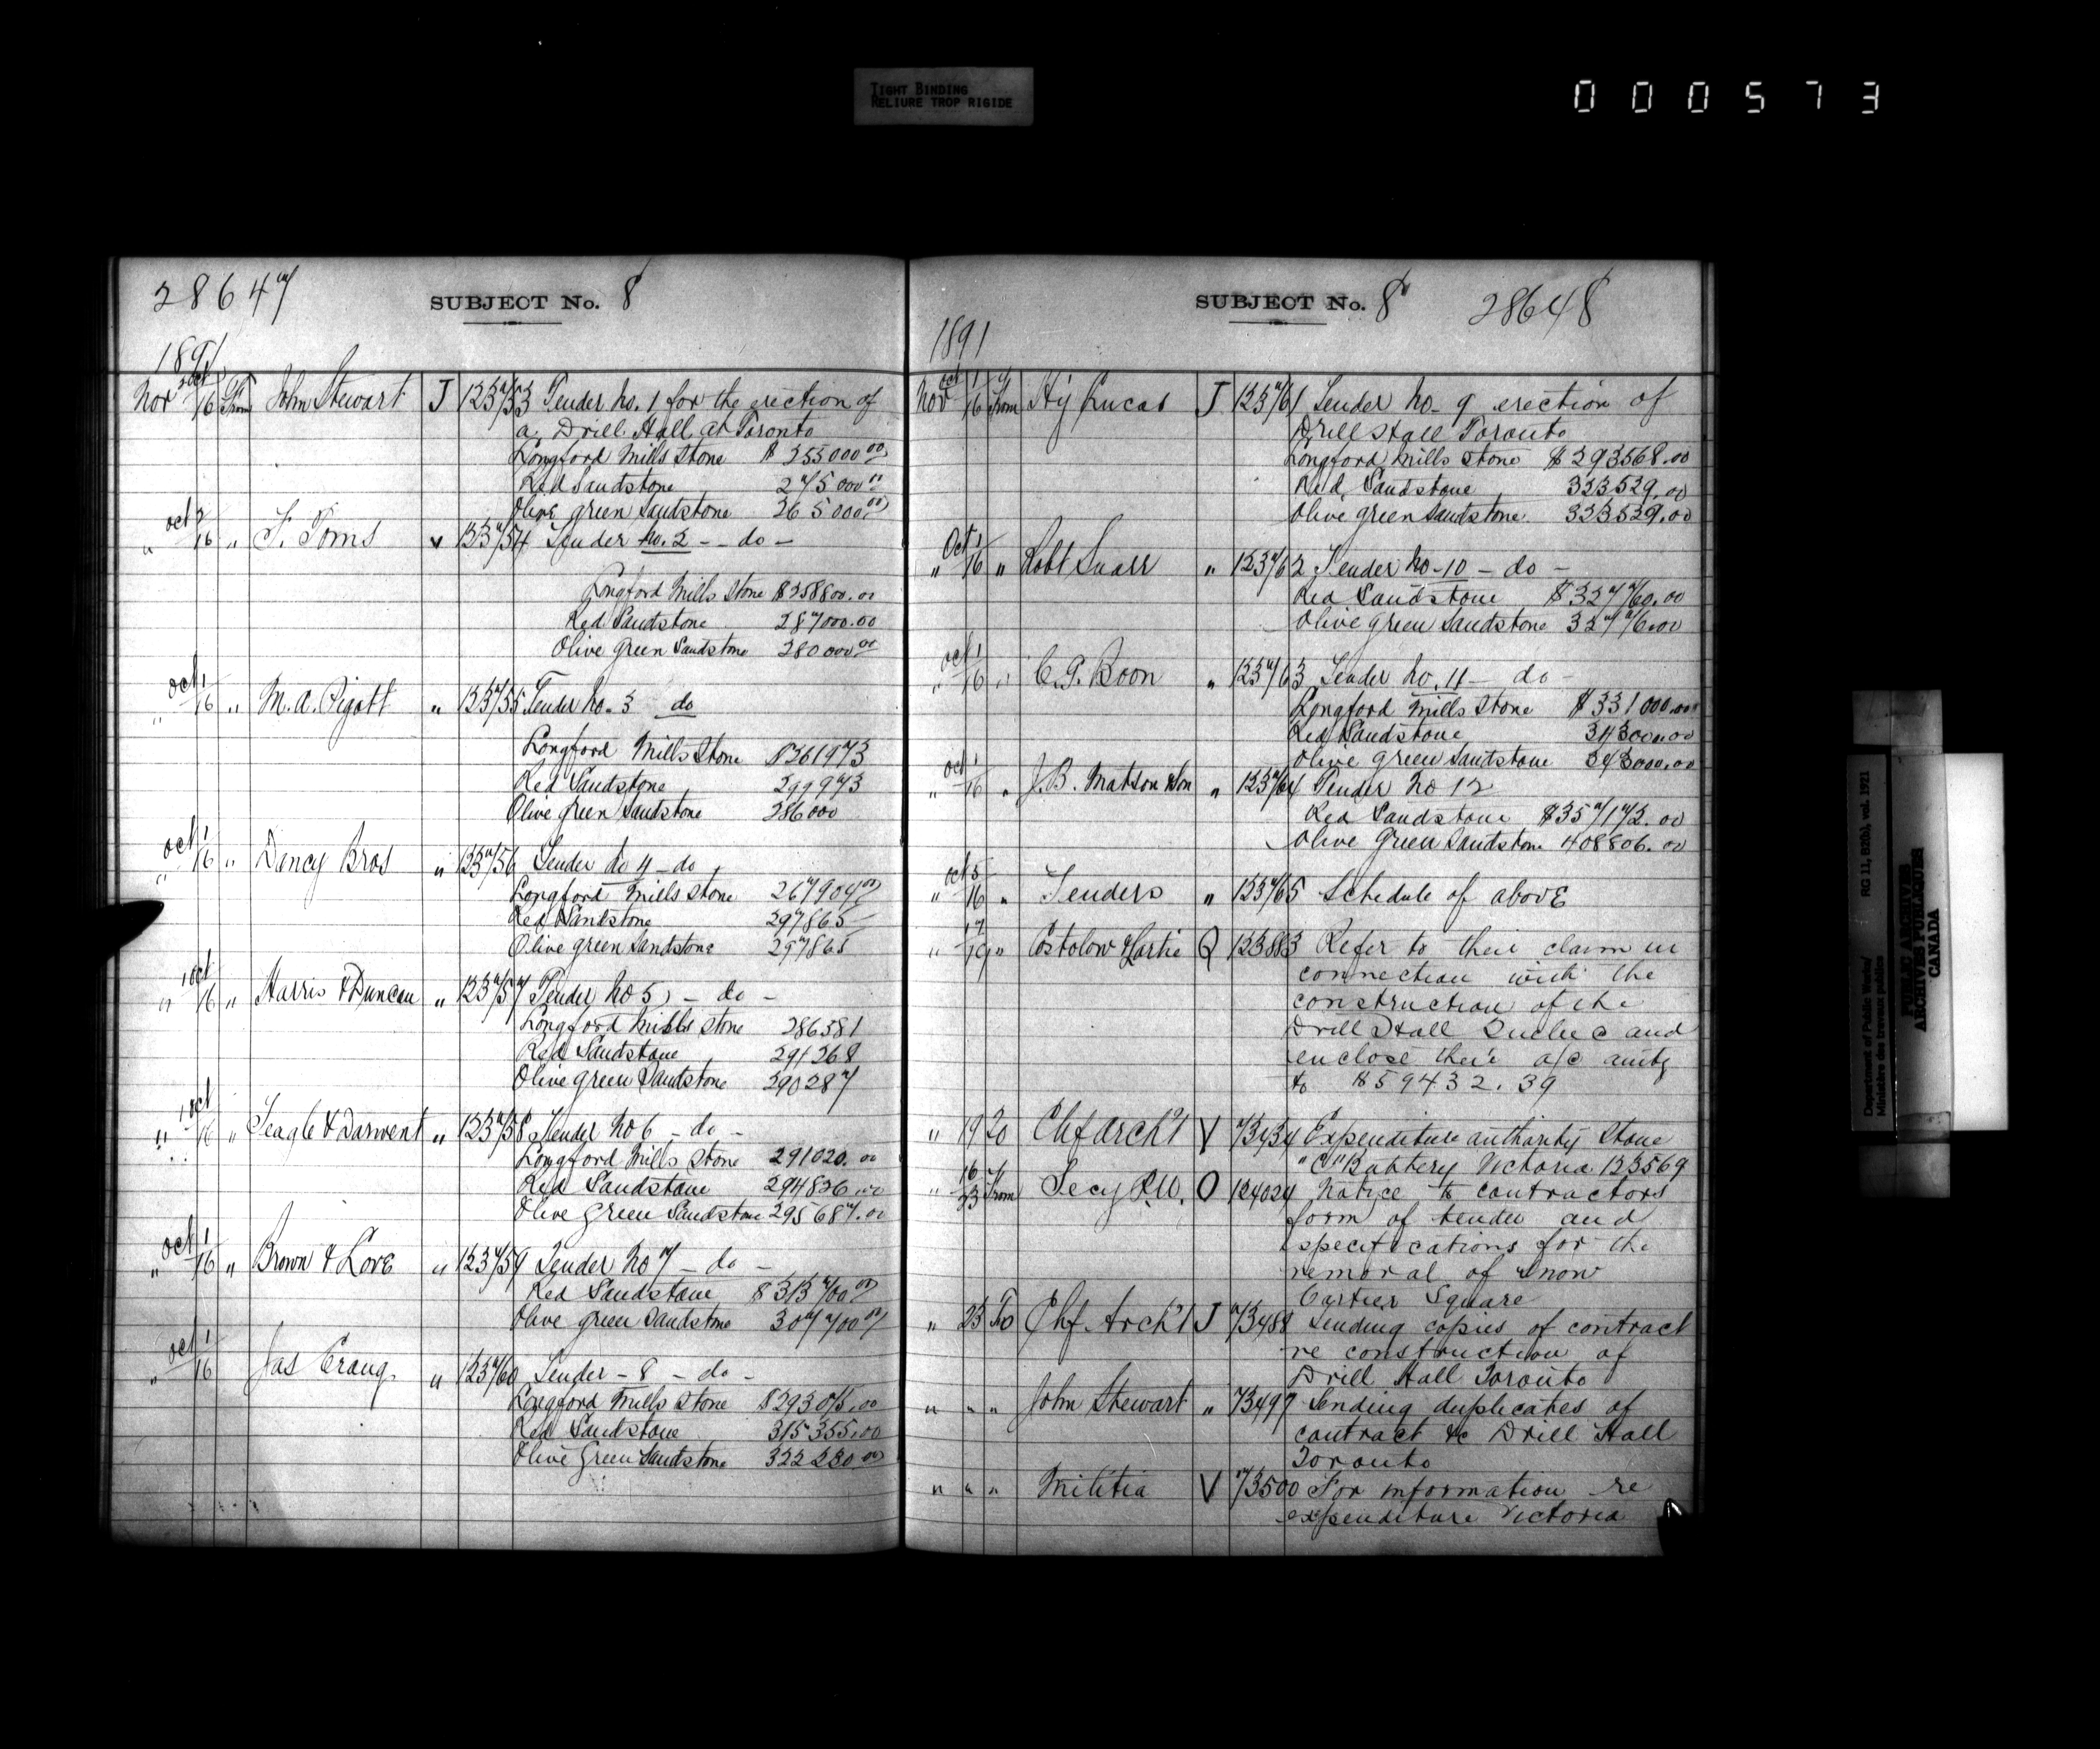 TIGHT BINDING
RELIURE TROP RIGIDE
000573
28647
SUBJECT No. 8
1891
Nov Oct 2/16 From John Stewart J 123753 Tender No. 1 for the erection of
a Drill Hall at Toronto
Longford Mills Stone $ 255000 00
Red Sandstone 275000 00
Olive green Sandstone 265000 00
" Oct 2/16 " F. Toms " 123754 Tender No. 2 -- do -
Longford Mills Stone $258800.00
Red Sandstone 287000.00
Olive Green Sandstone 280000 00
" Oct 1/16 " M. A. Pigott " 123755 Tender No. 3 do
Longford Mills Stone $261973
Red Sandstone 299973
Olive green Sandstone 286000
" Oct 1/16 " Dancy Bros " 123756 Tender No 4 - do
Longford Mills Stone 267904 00
Red Sandstone 297865 -
Olive green Sandstone 297865
" 1 Oct/16 " Harris & Duncan " 123757 Tender No 5 - do -
Longford Mills Stone 286581
Red Sandstone 291268
Olive green Sandstone 290287
" 1 Oct/16 " Teagle & Darwent " 123758 Tender No 6 - do -
Longford Mills Stone 291020.00
Red Sandstone 294826.00
Olive Green Sandstone 295687.00
" Oct 1/16 " Brown & Love " 123759 Tender No 7 - do -
Red Sandstone $ 313700 00
Olive green Sandstone 307700 00
" Oct 1/16 Jas Crang " 123760 Tender - 8 - do -
Longford Mills Stone $293015.00
Red Sandstone 315355.00
Olive Green Sandstone 322230 00
SUBJECT No. 8 28648
1891
Nov Oct 1/16 From Hy Lucas J 123761 Tender No. 9 erection of
Drill Hall Toronto
Longford Mills Stone $293568.00
Red Sandstone 323529.00
Olive green Sandstone 323529.00
" Oct 1/16 " Robt Snarr " 123762 Tender No - 10 - do -
Red Sandstone $327760.00
Olive green Sandstone 327760.00
" Oct 1/16 " C. G. Boon " 123763 Tender No. 11 - do -
Longford Mills Stone $331000.00
Red Sandstone 343000.00
Olive green Sandstone 343000.00
" Oct 1/16 " J. B. Matson & Son " 123764 Tender No 12
Red Sandstone $357172.00
Olive Green Sandstone 408806.00
" Oct 5/16 " Tenders " 123765 Schedule of above
" 17/19 " Q 123883 Refer to their claim in
connection with the
construction of the
Drill Hall Quebec and
enclose their a/c amtg
to $59432.39
" 19 20 Chf Arch't V 73434 Expenditure authority Stone
"C" Battery Victoria 123569
" 16/23 From Secy P.W. O 124024 Notice to contractors
form of tender and
specifications for the
removal of snow
Cartier Square
" 23 To Chf. Arch't J 73488 Sending copies of contract
re construction of
Drill Hall Toronto
" " " John Stewart " 73497 Sending duplicates of
contract &c Drill Hall
Toronto
" " " Militia V 73500 For information re
expenditure Victoria
Department of Public Works/ RG 11, B2(b), vol. 1921
Ministère des travaux publics
PUBLIC ARCHIVES
ARCHIVES PUBLIQUES
CANADA